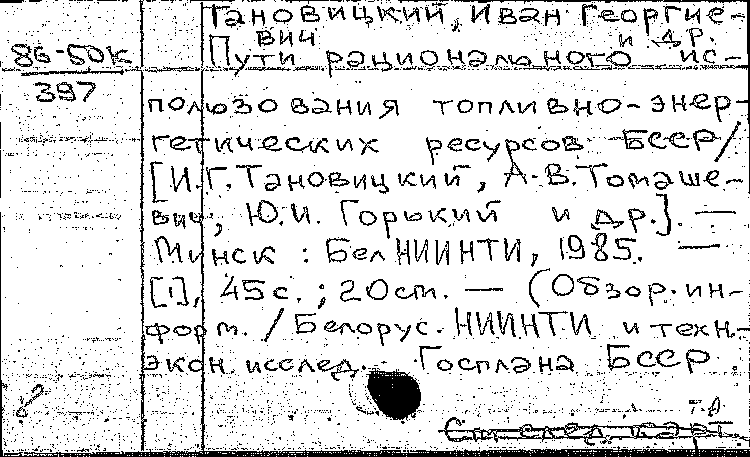 Тановицкий, Иван Георгие-
вич и др.
86-50К
397
Пути рационального ис-
пользования топливно-энер-
гетических ресурсов БССР/
[И.Г.Тановицкий, А.В.Томаше-
вич, Ю.И. Горький и др.]. —
Минск : БелНИИНТИ, 1985. —
[1], 45с. ; 20см. — (Обзор. ин-
форм. / Белорус. НИИНТИ и техн.-
экон. исслед. Госплана БССР.
См. след. карт.